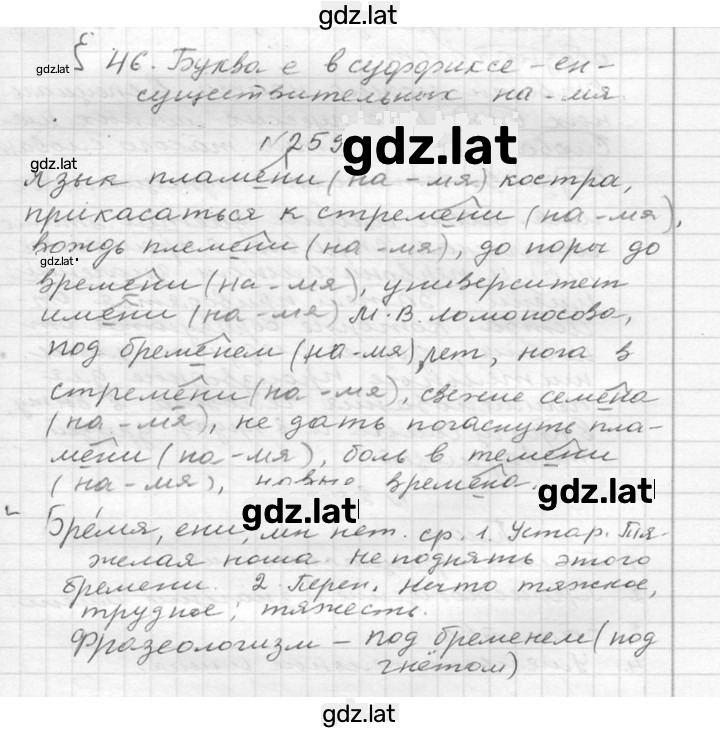 gdz.lat
§ 46. Буква е в суффиксе -ен-
gdz.lat
существительных на -мя.
№259
gdz.lat
gdz.lat
язык пламени (на -мя) костра,
прикасаться к стремени (на -мя),
вождь племени (на -мя), до поры до
gdz.lat
времени (на -мя), университет
имени (на -мя) М. В. Ломоносова,
под бременем (на -мя) лет, нога в
стремени (на -мя), свежие семена
(на -мя), не дать погаснуть пла-
мени (на -мя), боль в темени
(на -мя), времена.
gdz.lat
gdz.lat
Бремя, ени, мн нет. ср. 1. Устар. Тя-
желая ноша. Не поднять этого
бремени. 2. Перен. Нечто тяжкое,
трудное; тяжесть.
Фразеологизм – под бременем (под
гнётом)
gdz.lat